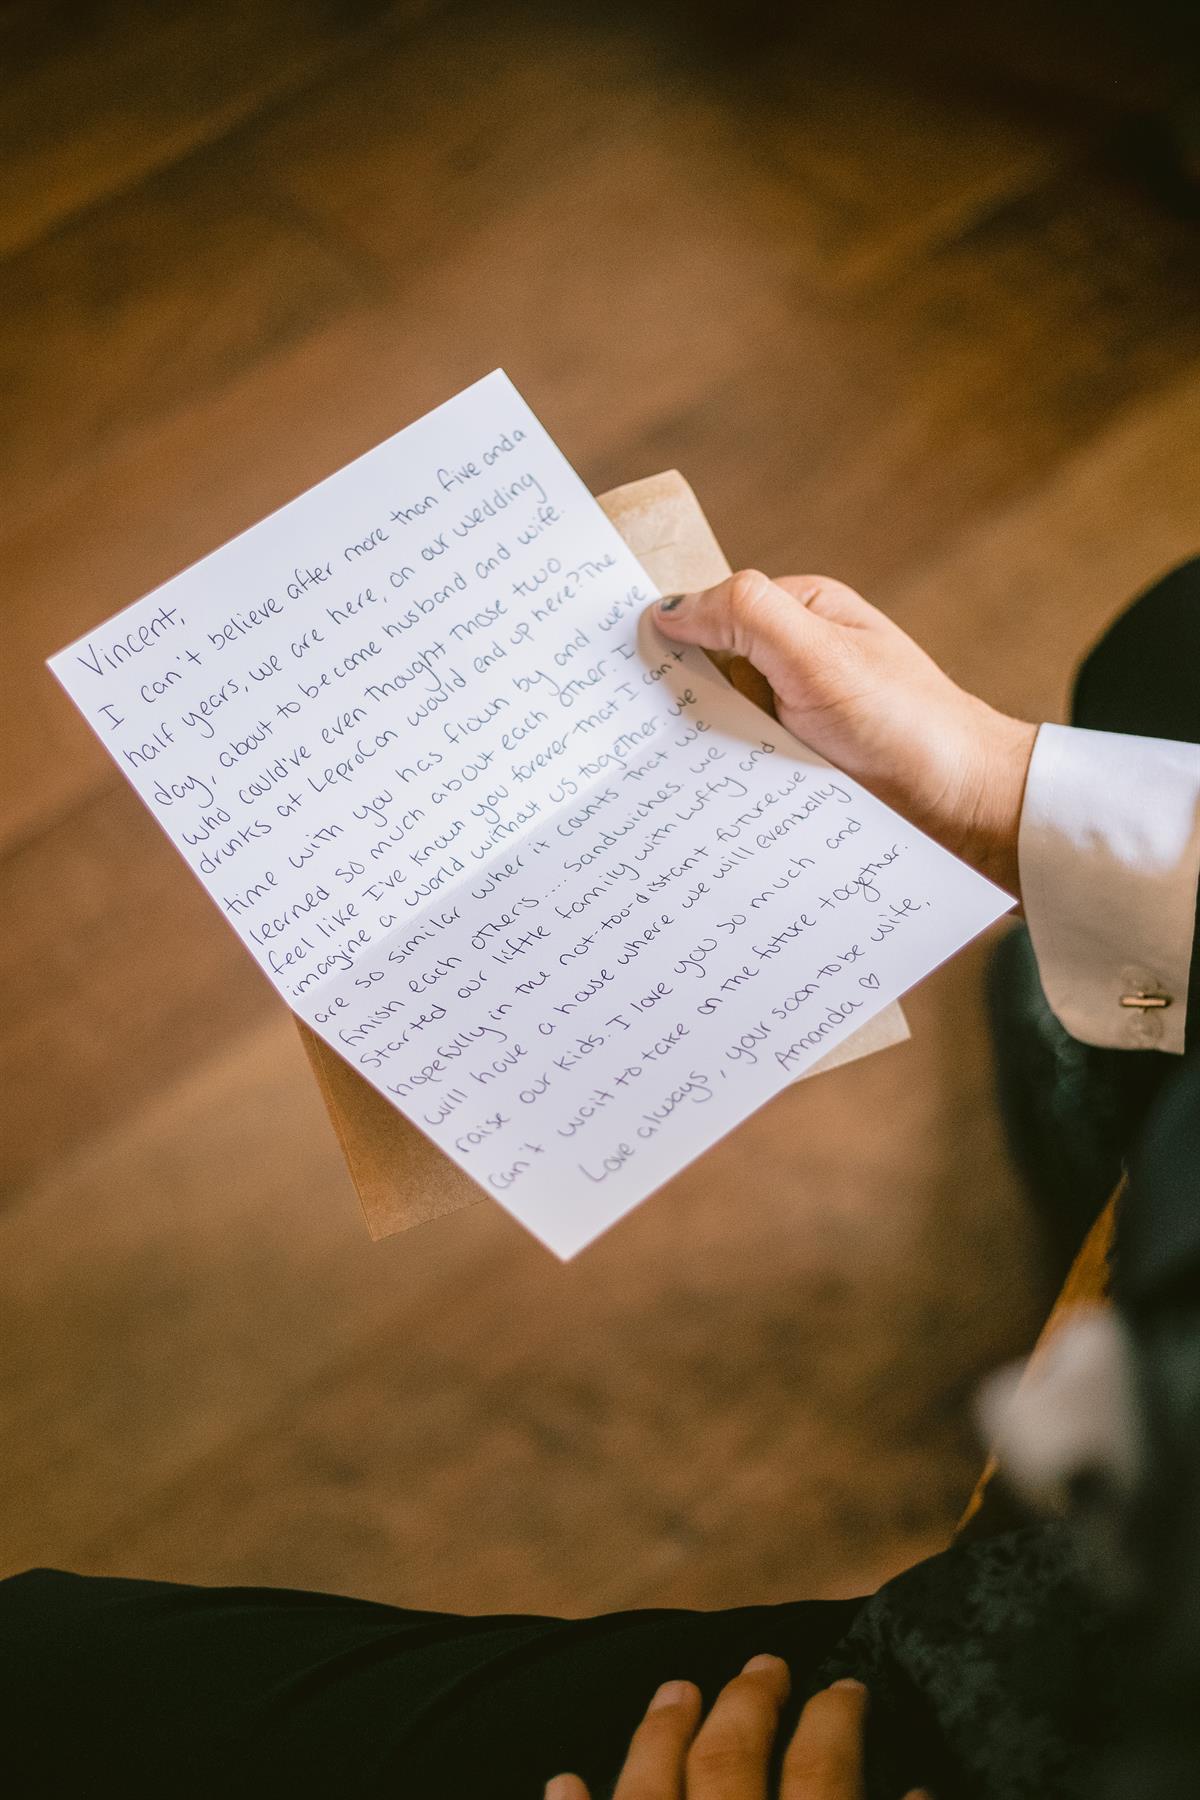 Vincent,
I can't believe after more than five and a
half years, we are here, on our wedding
day, about to become husband and wife.
Who could've even thought those two
drunks at LeproCon would end up here? The
time with you has flown by and we've
learned so much about each other. I
feel like I've known you forever that I can't
imagine a world without us together. We
are so similar when it counts that we
finish each others.... Sandwiches. We
started our little family with Luffy and
hopefully in the not-too-distant future we
will have a house where we will eventually
raise our kids. I love you so much and
can't wait to take on the future together.
Love always, your soon to be wife,
Amanda ♡